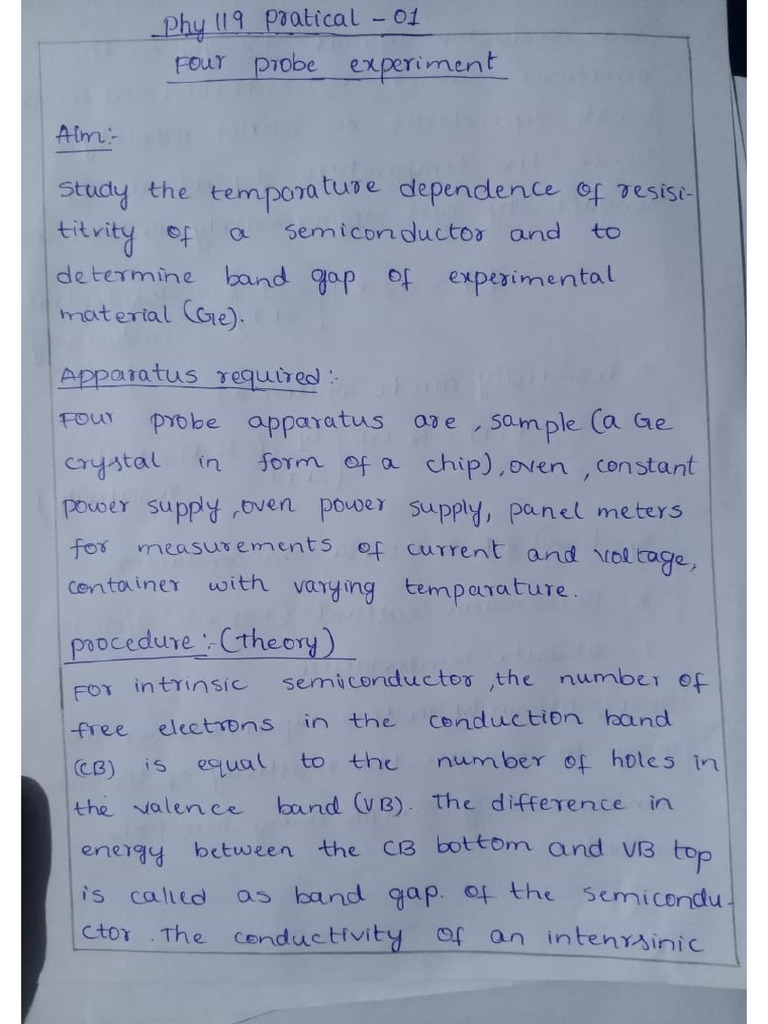 Phy 119 Pratical - 01
Four probe experiment
Aim:-
Study the temparature dependence of resisi-
titvity of a semiconductor and to
determine band gap of experimental
material (Ge).
Apparatus required :-
Four probe apparatus are , sample (a Ge
crystal in form of a chip), oven , constant
power supply , oven power supply, panel meters
for measurements of current and voltage,
container with varying temparature.
procedure :- (theory)
For intrinsic semiconductor , the number of
free electrons in the conduction band
(CB) is equal to the number of holes in
the valence band (VB). The difference in
energy between the CB bottom and VB top
is called as band gap. of the semicondu-
ctor . The conductivity of an intenrsinic